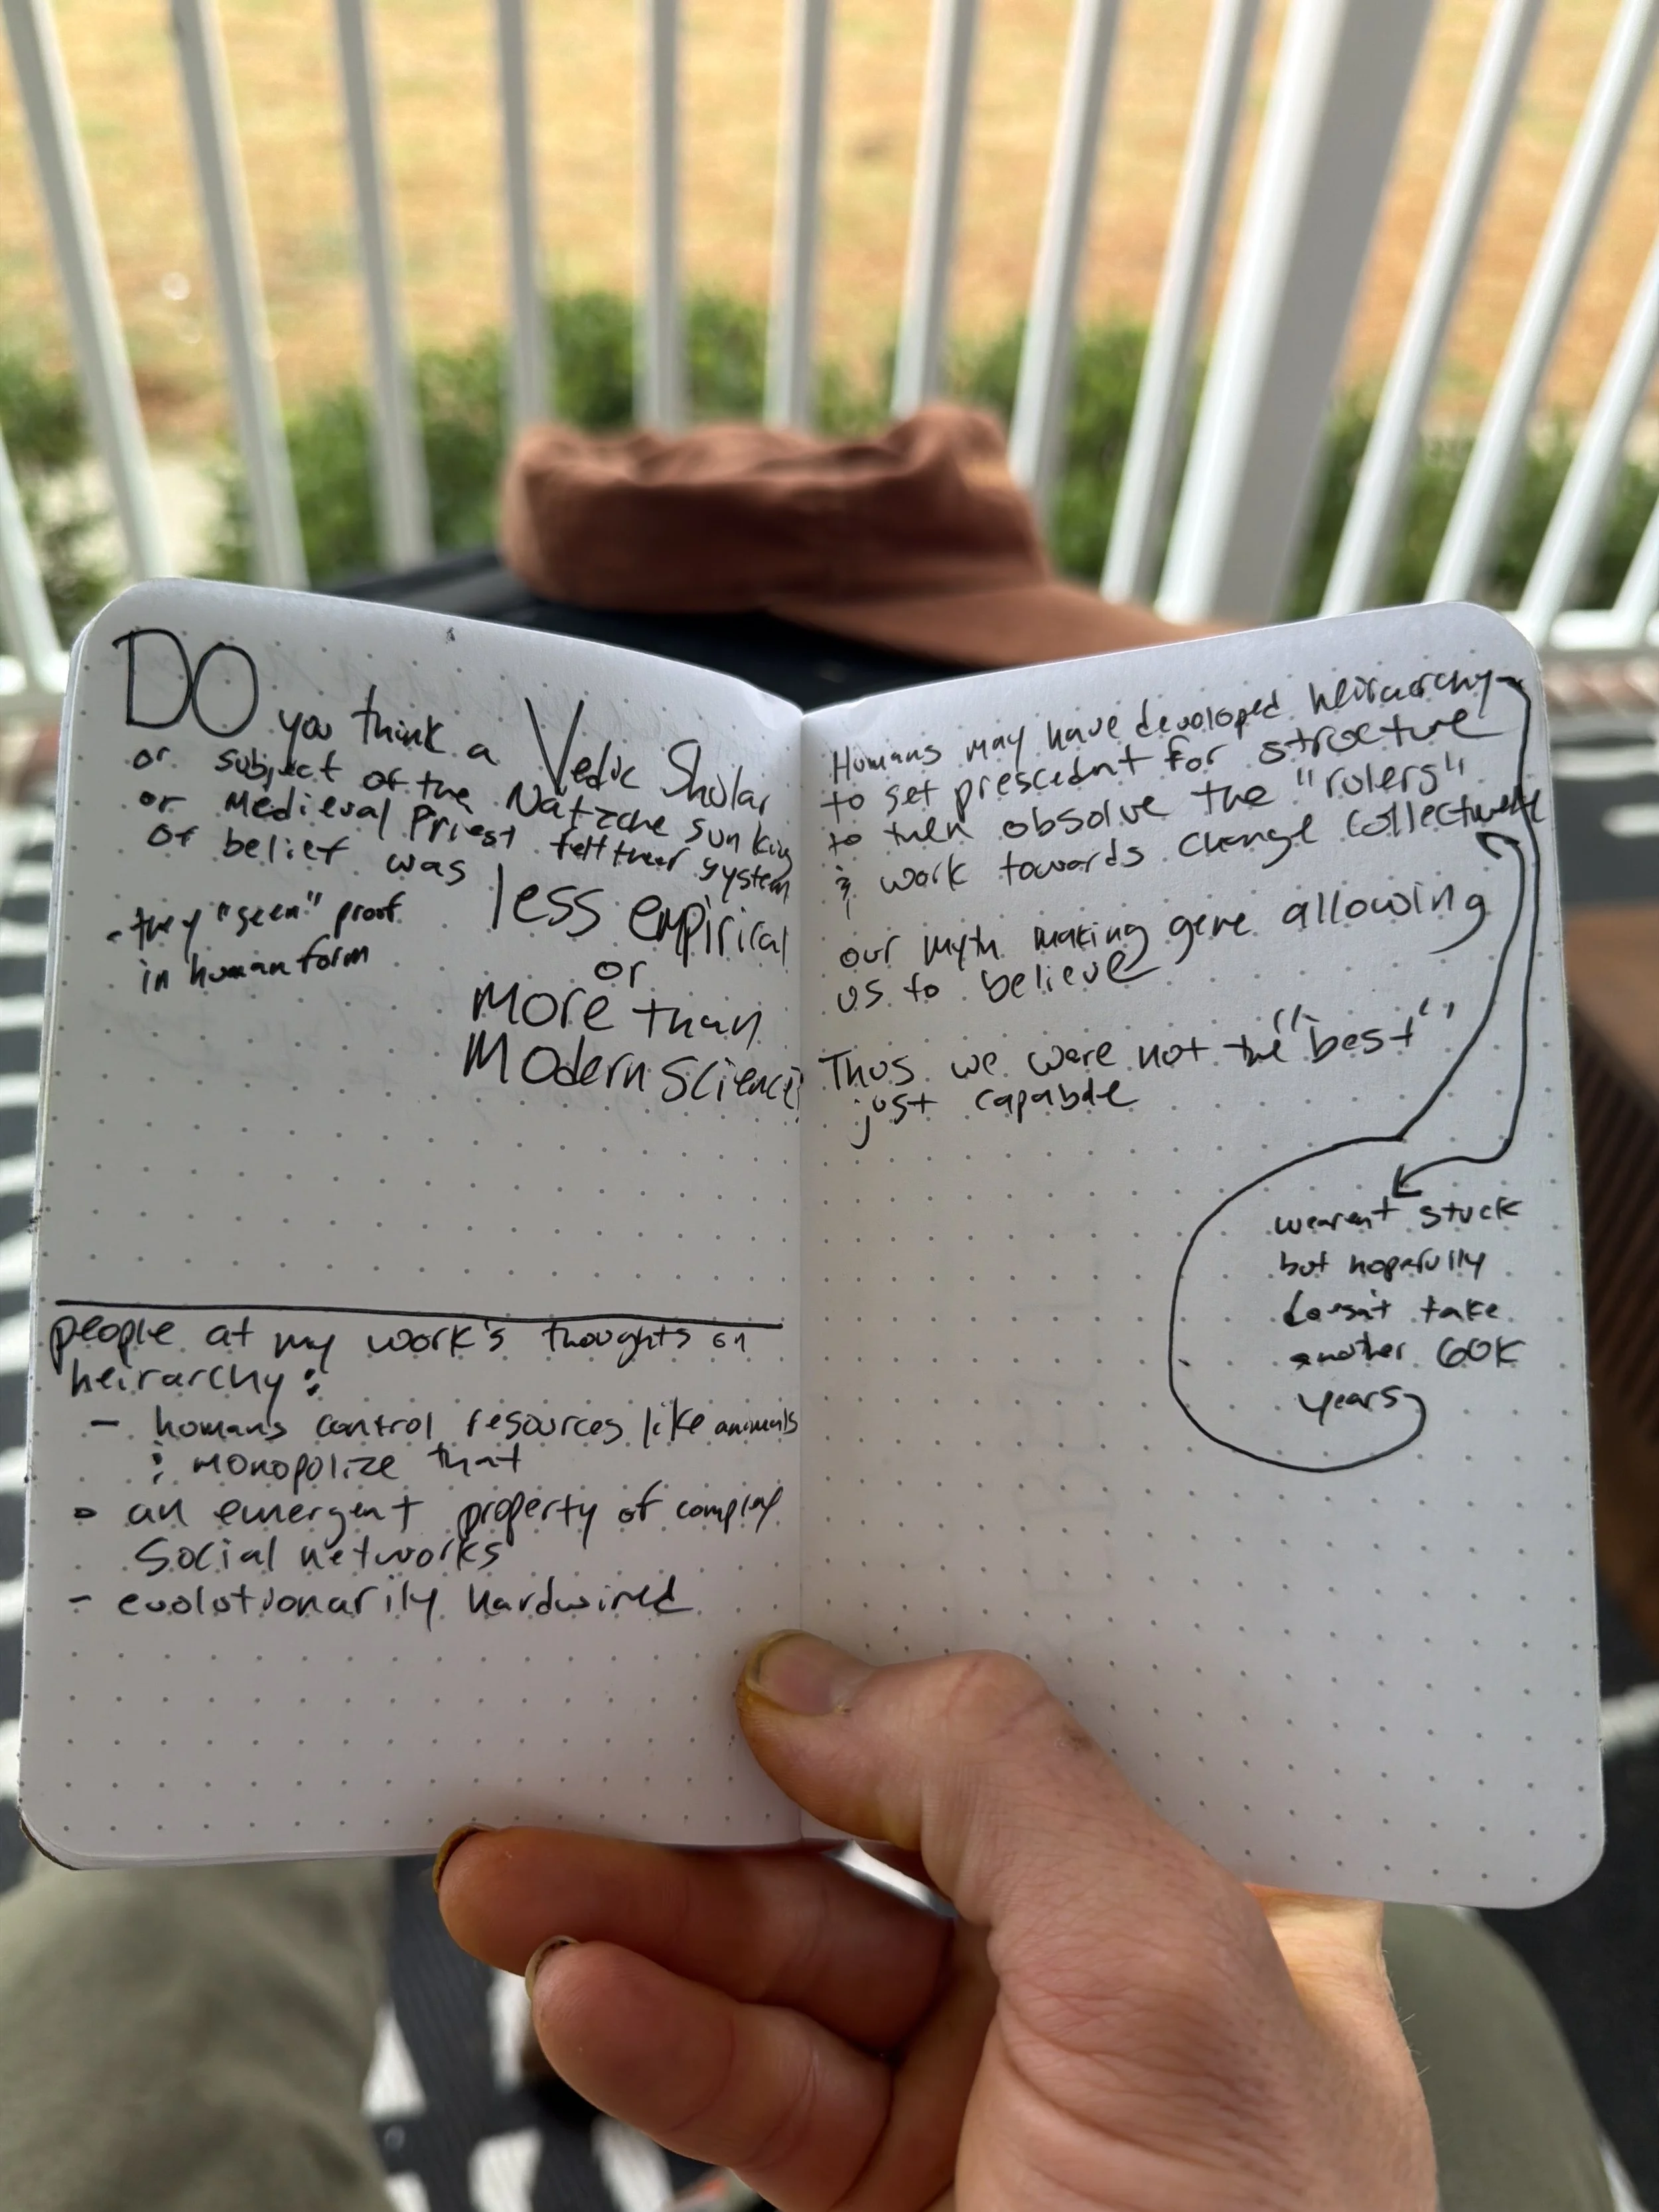 DO you think a Vedic Sholar
or subject of the Natzche sun king
or Medieval Priest felt their system
of belief was less empirical
or
more than
Modern Science?
- they "seen" proof
in human form
people at my work's thoughts on
heirarchy:
- humans control resources like animals
& monopolize that
- an emergent property of complex
social networks
- evolutionarily hardwired
Humans may have developed heirarchy
to set prescedent for structure
to then obsolve the "rulers"
& work towards change collectively
our myth making gene allowing
us to believe
Thus we were not the "best"
just capable
wearent stuck
but hopefully
doesn't take
another 60K
years